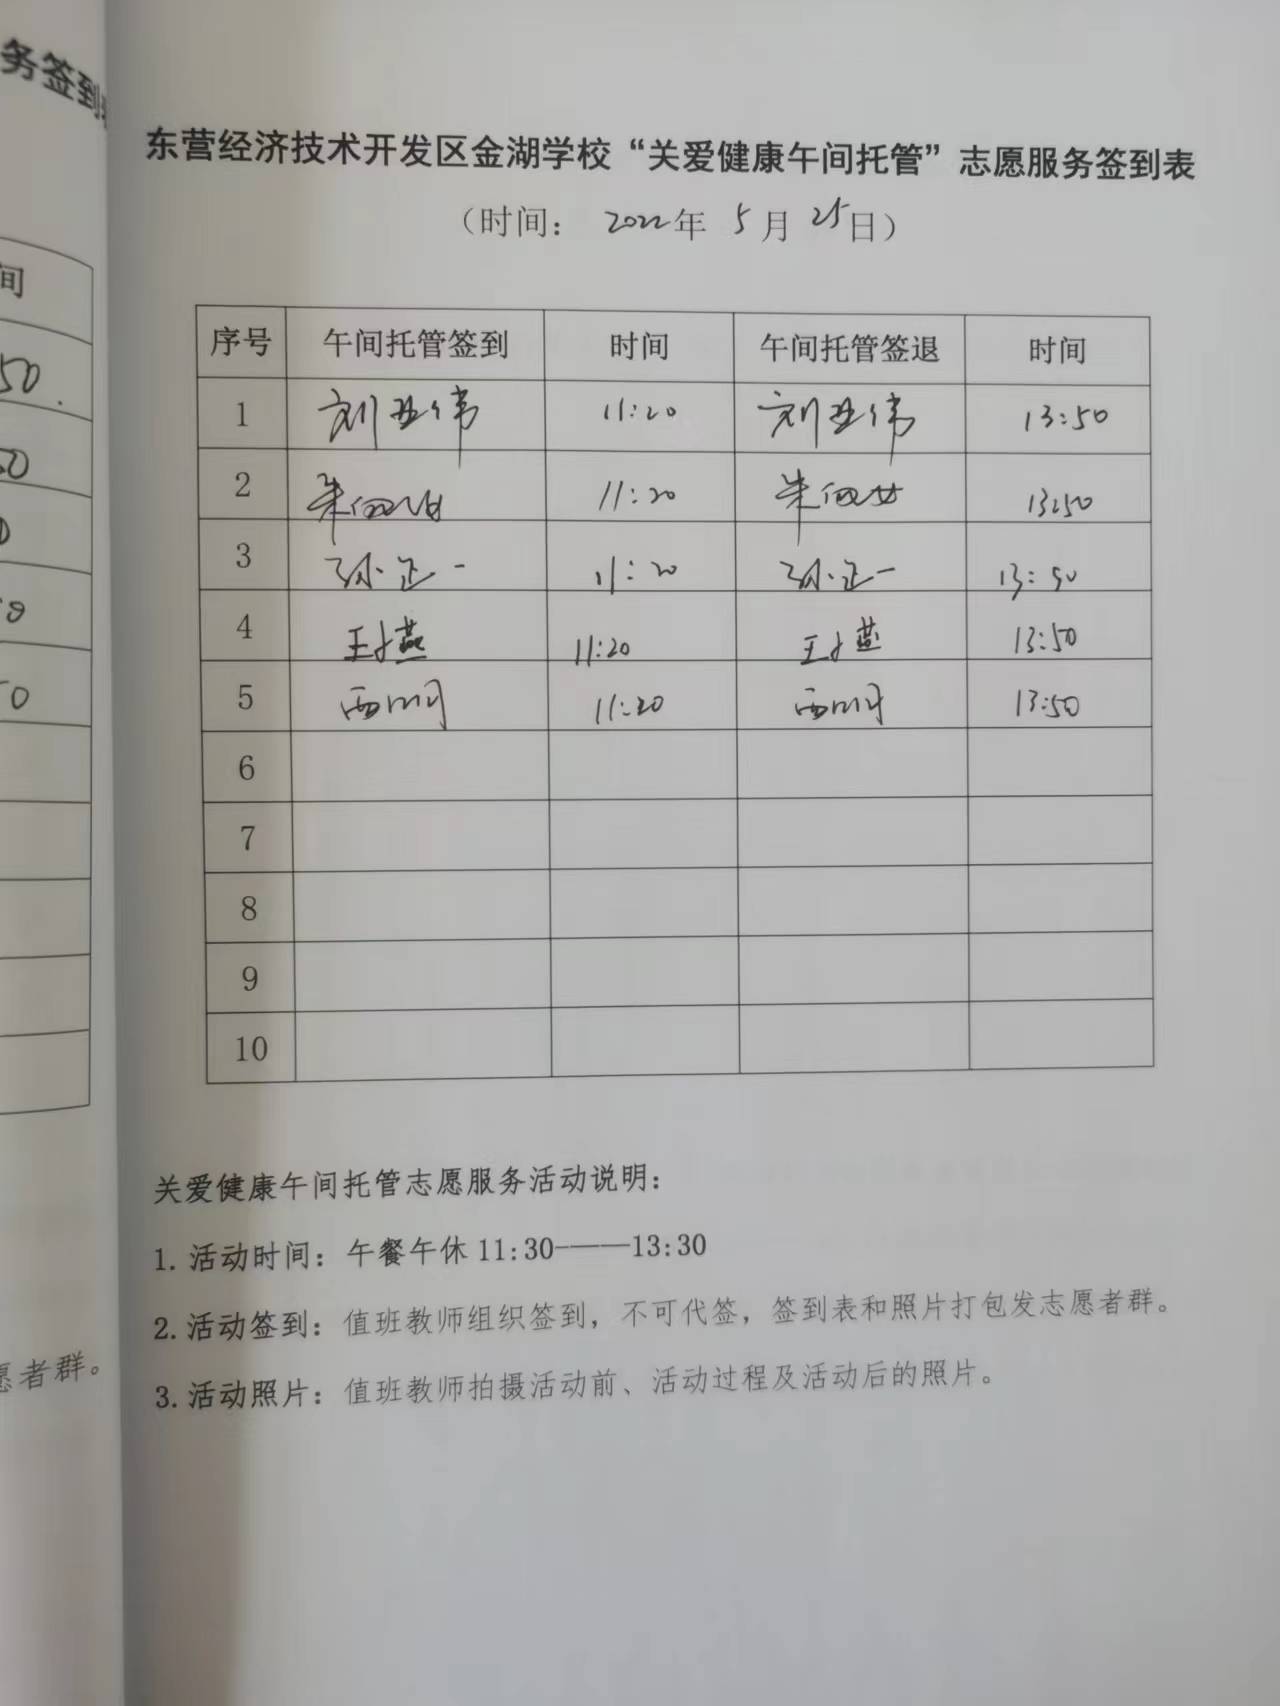 务签到
间
50
50
愿者群。
东营经济技术开发区金湖学校“关爱健康午间托管”志愿服务签到表
（时间： 2022年 5月 25日）
序号 午间托管签到 时间 午间托管签退 时间
1 刘亚伟 11:20 刘亚伟 13:50
2 11:20 13:50
3 孙正一 11:20 孙正一 13:50
4 11:20 13:50
5 11:20 13:50
6
7
8
9
10
关爱健康午间托管志愿服务活动说明：
1. 活动时间：午餐午休 11:30———13:30
2. 活动签到：值班教师组织签到，不可代签，签到表和照片打包发志愿者群。
3. 活动照片：值班教师拍摄活动前、活动过程及活动后的照片。